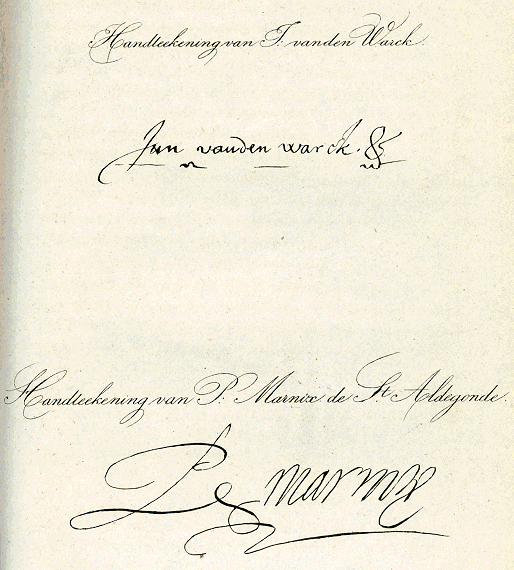 Handteekening van J. van den Warck.
Jan vanden warck.
Handteekening van P. Marnix de St. Aldegonde.
P de marnix